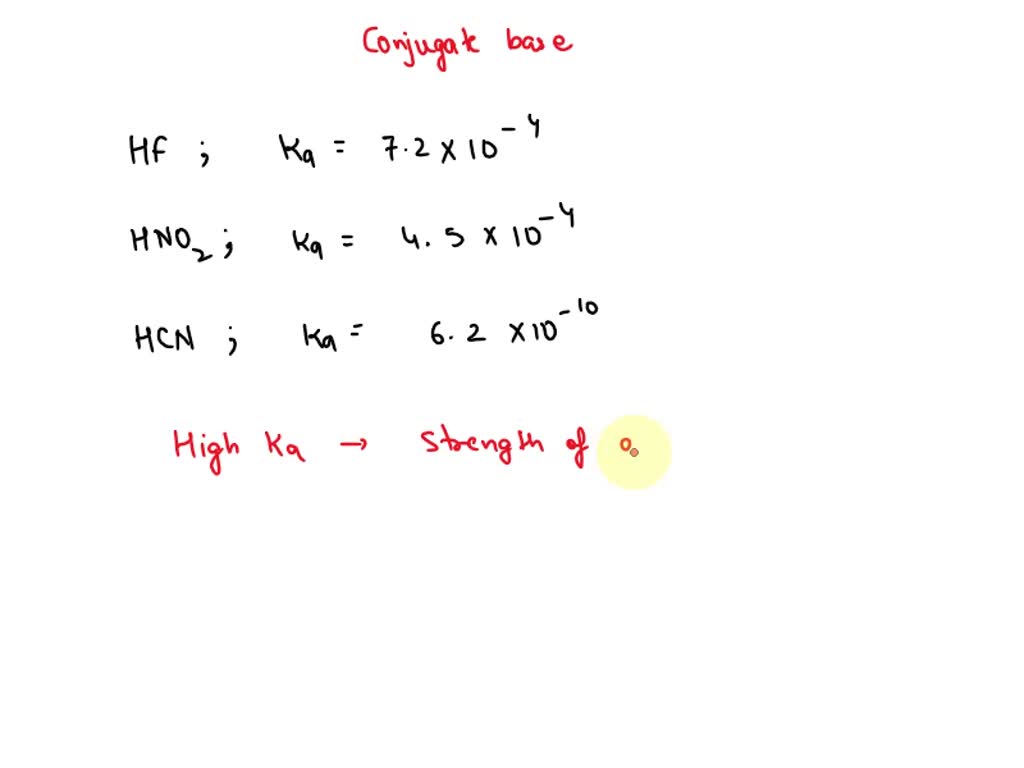 Conjugate base
HF ; Ka = 7.2 × 10⁻⁴
HNO₂ ; Ka = 4.5 × 10⁻⁴
HCN ; Ka = 6.2 × 10⁻¹⁰
High Ka → Strength of